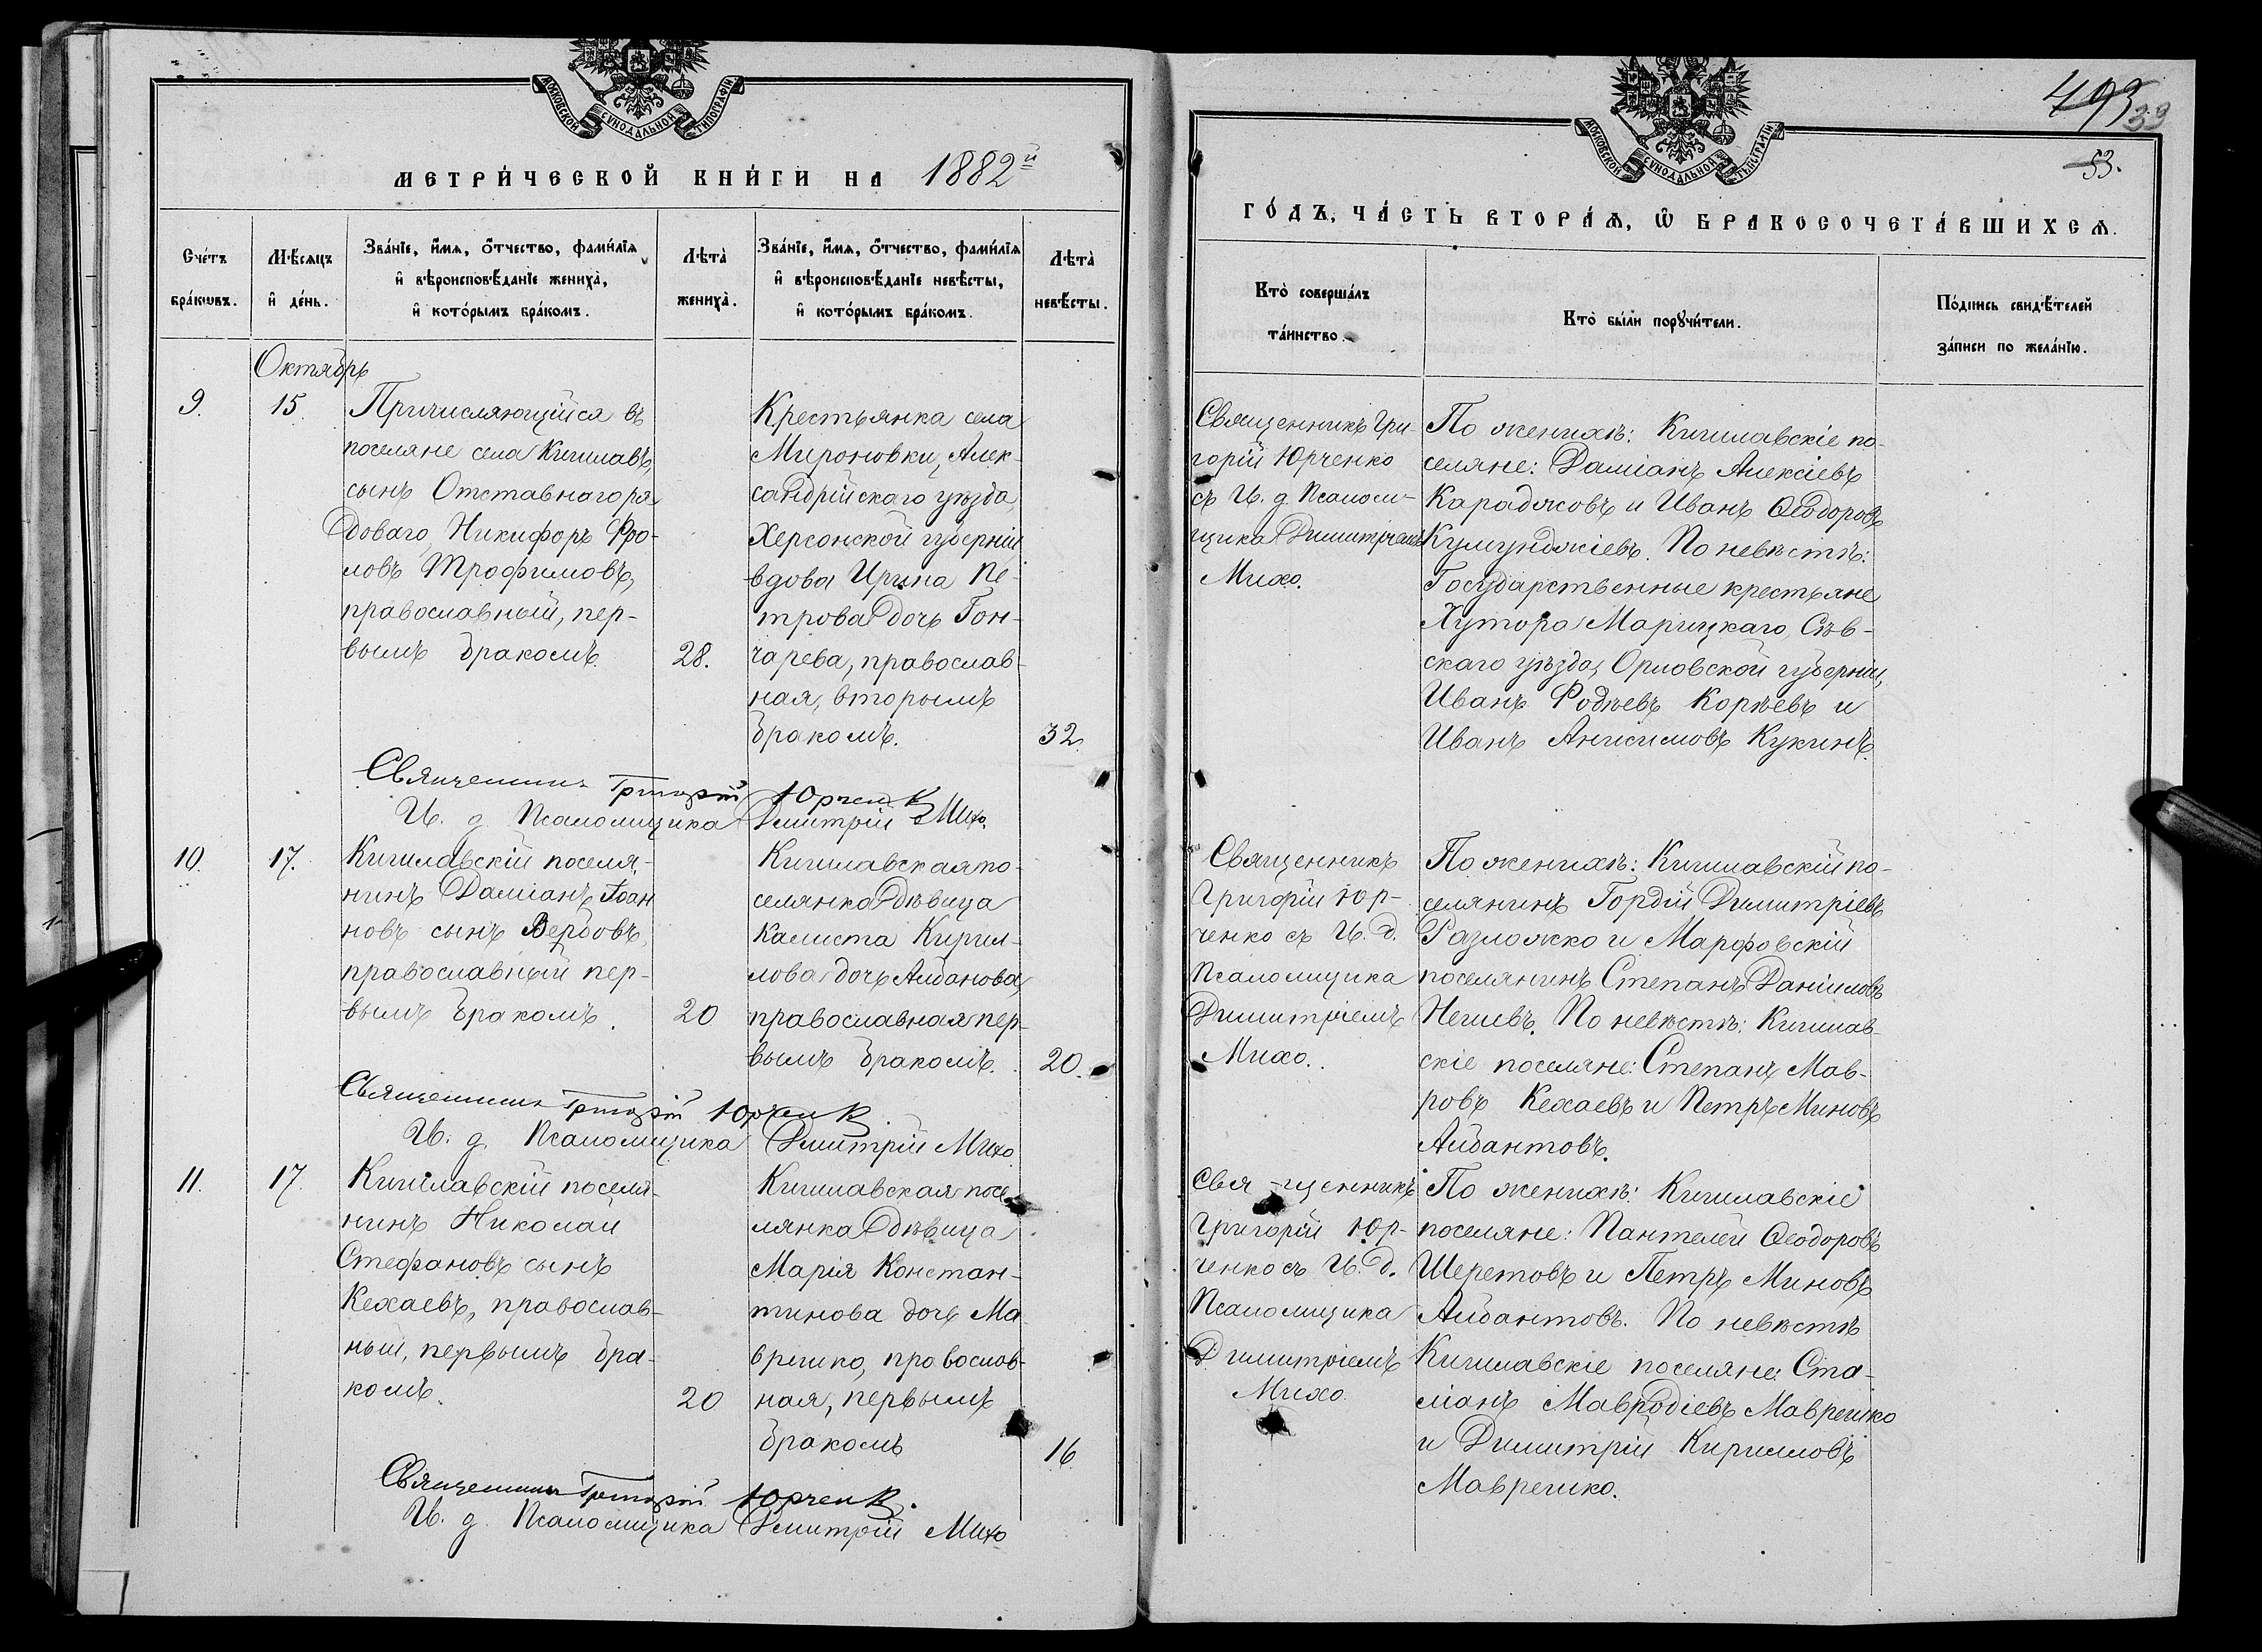 МОСКОВСКОЙ СѴНОДАЛЬНОЙ ТИПОГРАФІИ
МЕТРИ́ЧЕСКОЙ КНИ́ГИ НА 1882й
Сче́тъ бра́кѡвъ.
Мѣ́сяцъ и҆ де́нь.
Зва́нїе, и҆́мя, ѻ҆́тчество, фами́лїя
и҆ вѣроисповѣ́данїе жениха̀,
и҆ кото́рымъ бра́комъ.
Лѣта̀ жениха̀.
Зва́нїе, и҆́мя, ѻ҆́тчество, фами́лїя
и҆ вѣроисповѣ́данїе невѣ́сты,
и҆ кото́рымъ бра́комъ.
Лѣта̀ невѣ́сты.
Октябрь
9.
15.
Причисляющійся въ
поселяне села Кичилавъ,
сынъ Отставнаго ря
доваго, Никифоръ Фро-
ловъ Трофимовъ,
православный, пер-
вымъ бракомъ.
28.
Крестьянка села
Мироновки, Алек-
сандрійскаго уѣзда,
Херсонской губерніи
вдова Ирина Пе-
трова дочь Гон-
чарева, православ-
ная, вторымъ
бракомъ.
32.
Священникъ Григорій Юрченко
И. д. Псаломщика Дмитрій Михо.
10.
17.
Кичилавскій поселя-
нинъ Даміанъ Іоан
новъ сынъ Вербовъ,
православный пер-
вымъ бракомъ.
20
Кичилавская по-
селянка дѣвица
Калиста Кирил-
лова дочь Айбанова,
православная пер-
вымъ бракомъ.
20.
Священникъ Григорій Юрченко
И. д. Псаломщика Дмитрій Михо
11.
17.
Кичилавскій поселя-
нинъ Николай
Стефановъ сынъ
Кехаевъ, православ-
ный, первымъ бра-
комъ.
20
Кичилавская посе
лянка дѣвица
Марія Констан-
тинова дочь Ма
врешко, православ-
ная, первымъ
бракомъ
16
Священникъ Григорій Юрченко.
И. д. Псаломщика Дмитрій Михо
МОСКОВСКОЙ СѴНОДАЛЬНОЙ ТИПОГРАФІИ
493
39
53.
ГО́ДЪ, ЧА́СТЬ ВТОРА́Ѧ, Ѡ҆ БРАКОСОЧЕТА́ВШИХСѦ.
Кто̀ соверша́лъ
та́инство.
Кто̀ бы́ли порꙋчи́тели.
По́дпись свидѣ́телей
за́писи по жела́нїю.
Священникъ Гри-
горій Юрченко
съ И. д. Псаломщика
Димитріемъ
Михо.
По женихѣ: Кичилавскіе по-
селяне: Даміанъ Алексіевъ
Караджовъ и Иванъ Ѳеодоровъ
Кумунджіевъ. По невѣстѣ:
Государственные крестьяне
Хутора Марицкаго, Сѣв-
скаго уѣзда, Орловской губерніи,
Иванъ Родіевъ Корѣевъ и
Иванъ Анисимовъ Кукинъ.
Священникъ
Григорій Юр-
ченко съ И. д.
Псаломщика
Димитріемъ
Михо.
По женихѣ: Кичилавскій по-
селянинъ Гордій Димитріевъ
Разложко и Марфовскій
поселянинъ Степанъ Даніиловъ
Нешевъ. По невѣстѣ: Кичилав-
скіе поселяне: Степанъ Мав-
ровъ Кехаевъ и Петръ Миновъ
Айбантовъ.
Свя-щенникъ
Григорій Юр-
ченко съ И. д.
Псаломщика
Димитріемъ
Михо.
По женихѣ: Кичилавскіе
поселяне: Пантелей Ѳеодоровъ
Шеретовъ и Петръ Миновъ
Айбантовъ. По невѣстѣ
Кичилавскіе поселяне: Ста-
міанъ Мавродіевъ Маврешко
и Димитрій Кирилловъ
Маврешко.